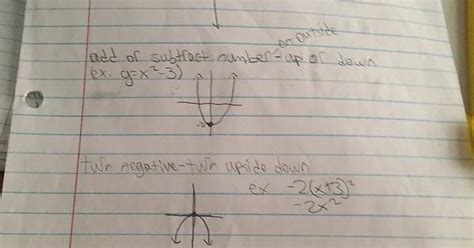 on outside
add or subtract number-up or down
ex. y=x²-3)
-3
turn negative-turn upside down
ex -2(x+3)²
-2x²